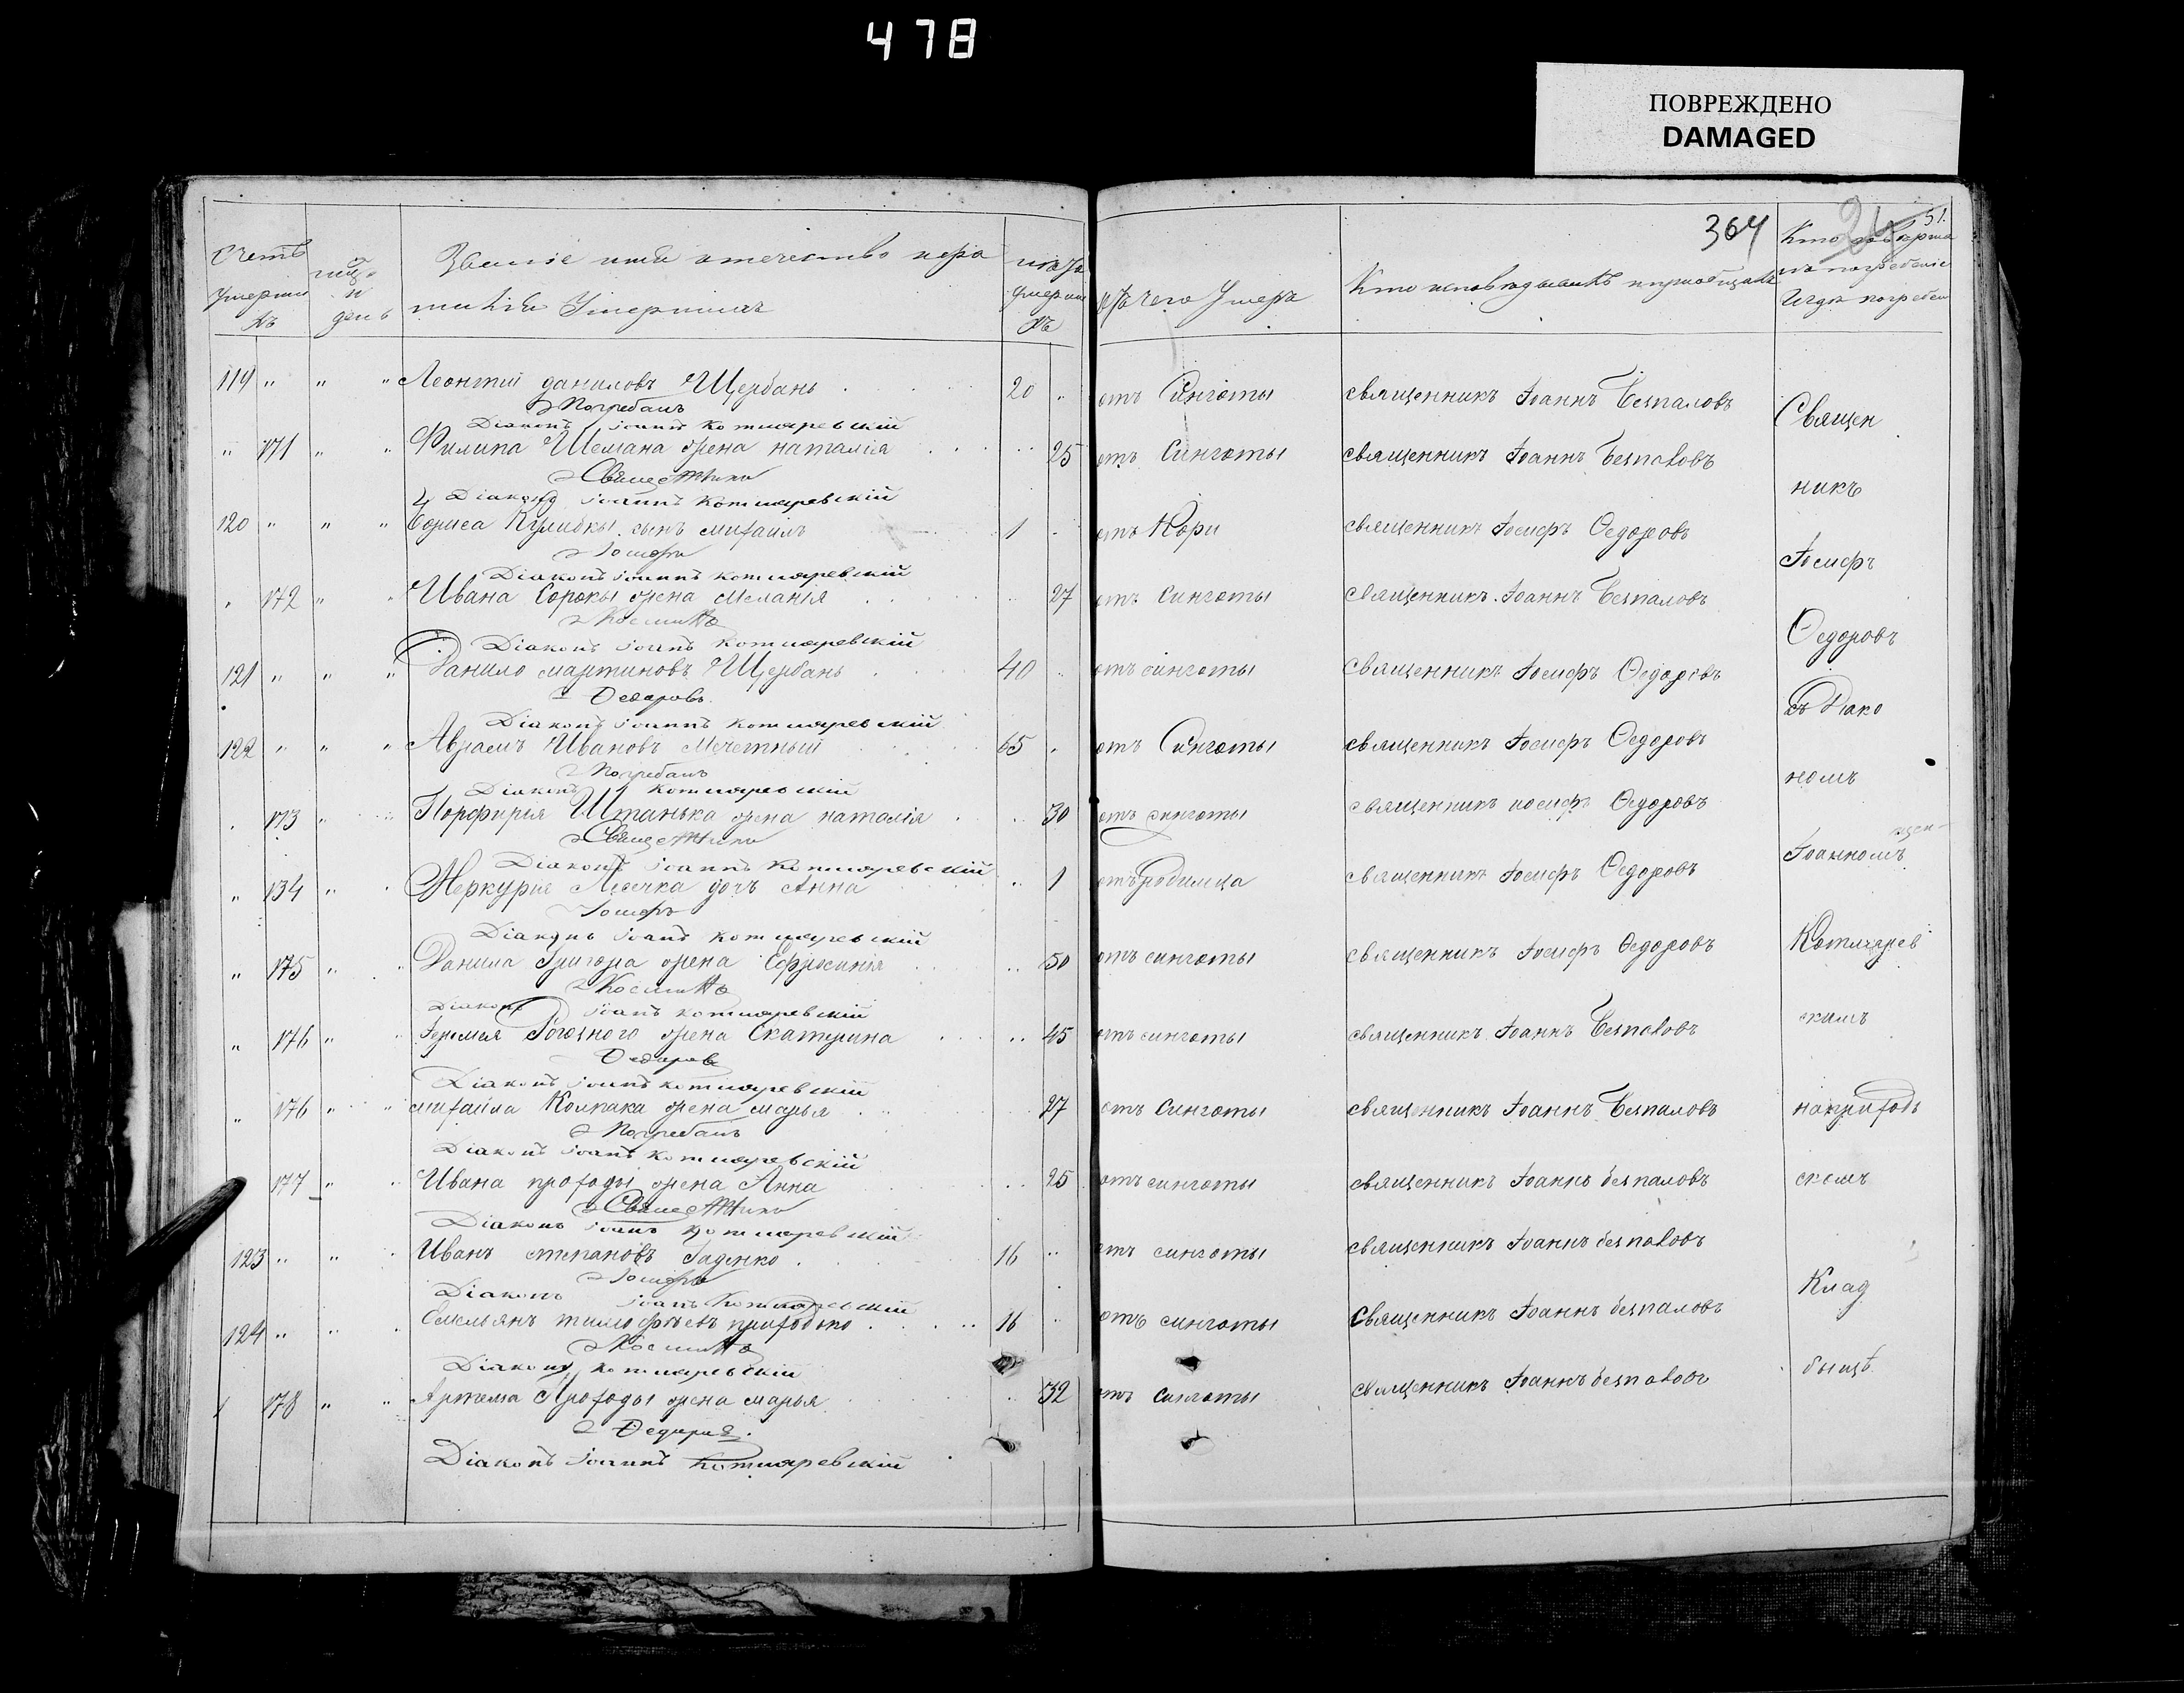 478
ПОВРЕЖДЕНО
DAMAGED
364
51.
Счетъ умершихъ
день
Званіе имя отечество
умершихъ
лѣта умершихъ
отъ чего умеръ
Кто исповѣдывалъ и приобщалъ
Кто
погребеніе
и гдѣ погребен
119 " " " Леонтій даниловъ Щербань 20 " отъ Синготы священникъ Іоаннъ Безпаловъ
Погребалъ
Діаконъ Іоаннъ Котляревскій
Священ
" 171 " " Филипа Шемана жена наталія 25 отъ Синготы священникъ Іоаннъ Безпаловъ
Священникъ
Діаконъ Іоаннъ Котляревскій
никъ
120 " " " Бориса Кулибки сынъ михаилъ 1 отъ Кори священникъ Іосифъ Ѳедоровъ
Іосифъ
Діаконъ Іоаннъ Котляревскій
Іосифъ
" 172 " " Ивана Сороки жена меланія 27 отъ Синготы священникъ Іоаннъ Безпаловъ
Діаконъ Іоаннъ Котляревскій
Ѳедоровъ
121 " " " Данило мартиновъ Щербань 40 отъ синготы священникъ Іосифъ Ѳедоровъ
Ѳедоровъ
Діаконъ Іоаннъ Котляревскій
съ Діако
122 " " " Аврамъ Ивановъ Мечетный 65 " отъ Синготы священникъ Іосифъ Ѳедоровъ
Погребалъ
Діаконъ Котляревскій
номъ
173 " " Порфирія Штанька жена наталія 30 отъ синготы священникъ иосифъ Ѳедоровъ
Священникъ
Діаконъ Іоаннъ Котляревскій
Іоанномъ
" 134 " " Меркурія дочь Анна 1 отъ родимца священникъ Іосифъ Ѳедоровъ
Іосифъ
Діаконъ Іоаннъ Котляревскій
Котлярев
" 175 " " Данила Григора жена Ефросинія 50 отъ синготы священникъ Іосифъ Ѳедоровъ
Діаконъ Іоаннъ Котляревскій
скимъ
" 176 " " Іеремія жена Екатерина 45 отъ синготы священникъ Іоаннъ Безпаловъ
Ѳедоровъ
Діаконъ Іоаннъ Котляревскій
" 176 " " михаила Колпака жена марья 27 отъ Синготы священникъ Іоаннъ Безпаловъ
Погребалъ
Діаконъ Іоаннъ Котляревскій
наприход
177 " " Ивана проходы жена Анна 25 отъ синготы священникъ Іоаннъ безпаловъ
Священникъ
Діаконъ Іоаннъ Котляревскій
скомъ
123 " " Иванъ степановъ Гаденко 16 " отъ синготы священникъ Іоаннъ безпаловъ
Іосифъ
Діаконъ Іоаннъ Котляревскій
Клад
124 " " Емельянъ тимофѣевъ приходько 16 " отъ синготы священникъ Іоаннъ безпаловъ
Діаконъ Котляревскій
бищѣ.
178 " " Артема Проходы жена марья 32 отъ Синготы священникъ Іоаннъ безпаловъ
Ѳедоровъ.
Діаконъ Іоаннъ Котляревскій